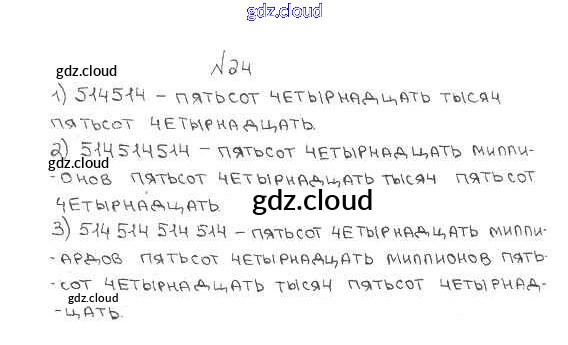 gdz.cloud
№24
gdz.cloud
1) 514514 – ПЯТЬСОТ ЧЕТЫРНАДЦАТЬ ТЫСЯЧ
ПЯТЬСОТ ЧЕТЫРНАДЦАТЬ.
2) 514514514 – ПЯТЬСОТ ЧЕТЫРНАДЦАТЬ МИЛЛИ-
gdz.cloud
-ОНОВ ПЯТЬСОТ ЧЕТЫРНАДЦАТЬ ТЫСЯЧ ПЯТЬСОТ
ЧЕТЫРНАДЦАТЬ.
gdz.cloud
3) 514 514 514 514 – ПЯТЬСОТ ЧЕТЫРНАДЦАТЬ МИЛЛИ-
-АРДОВ ПЯТЬСОТ ЧЕТЫРНАДЦАТЬ МИЛЛИОНОВ ПЯТЬ-
-СОТ ЧЕТЫРНАДЦАТЬ ТЫСЯЧ ПЯТЬСОТ ЧЕТЫРНАД-
gdz.cloud
-ЦАТЬ.